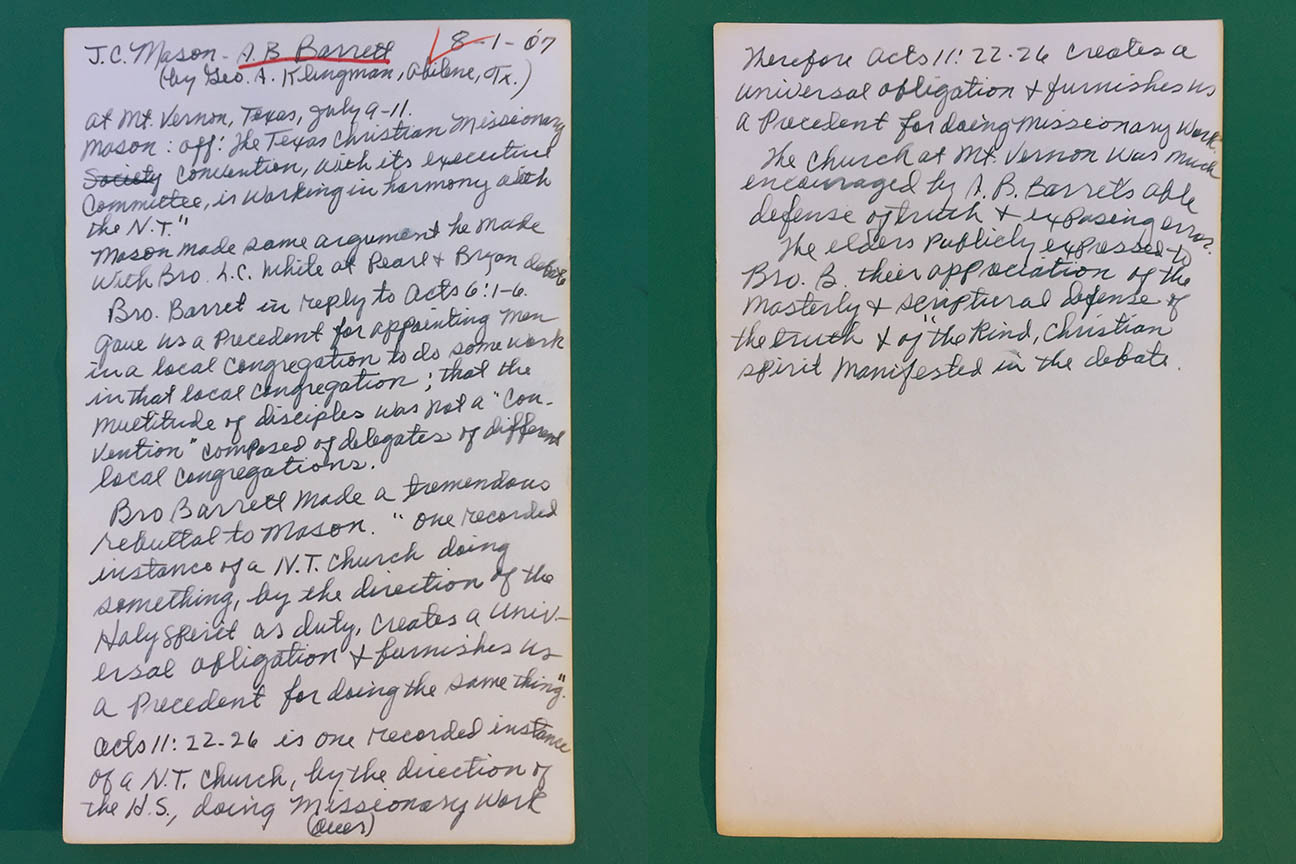 J.C. Mason - A.B. Barrett 8-1-07
(by Geo. A. Klingman, Abilene, Tx.)
at Mt. Vernon, Texas, July 9-11.
Mason: aff: The Texas Christian Missionary
Society Convention, with its executive
Committee, is working in harmony with
the N.T."
Mason made same argument he made
with Bro. L.C. White at Pearl & Bryan debate
Bro. Barret in reply to Acts 6:1-6.
gave us a Precedent for appointing men
in a local congregation to do some work
in that local congregation; that the
multitude of disciples was not a "Con-
vention" composed of delegates of different
local congregations.
Bro Barrett made a tremendous
rebuttal to Mason. "one recorded
instance of a N.T. Church doing
something, by the direction of the
Holy Spirit as duty, creates a univ-
ersal obligation & furnishes us
a Precedent for doing the same thing".
Acts 11:22-26 is one recorded instance
of a N.T. Church, by the direction of
the H.S., doing Missionary Work
(over)
Therefore Acts 11:22-26 creates a
universal obligation & furnishes us
a Precedent for doing Missionary Work.
The Church at Mt. Vernon was much
encouraged by A.B. Barret's able
defense of truth & exposing error.
The elders publicly expressed to
Bro. B. their appreciation of the
masterly & scriptural defense of
the truth & of "the kind, Christian
spirit manifested in the debate.